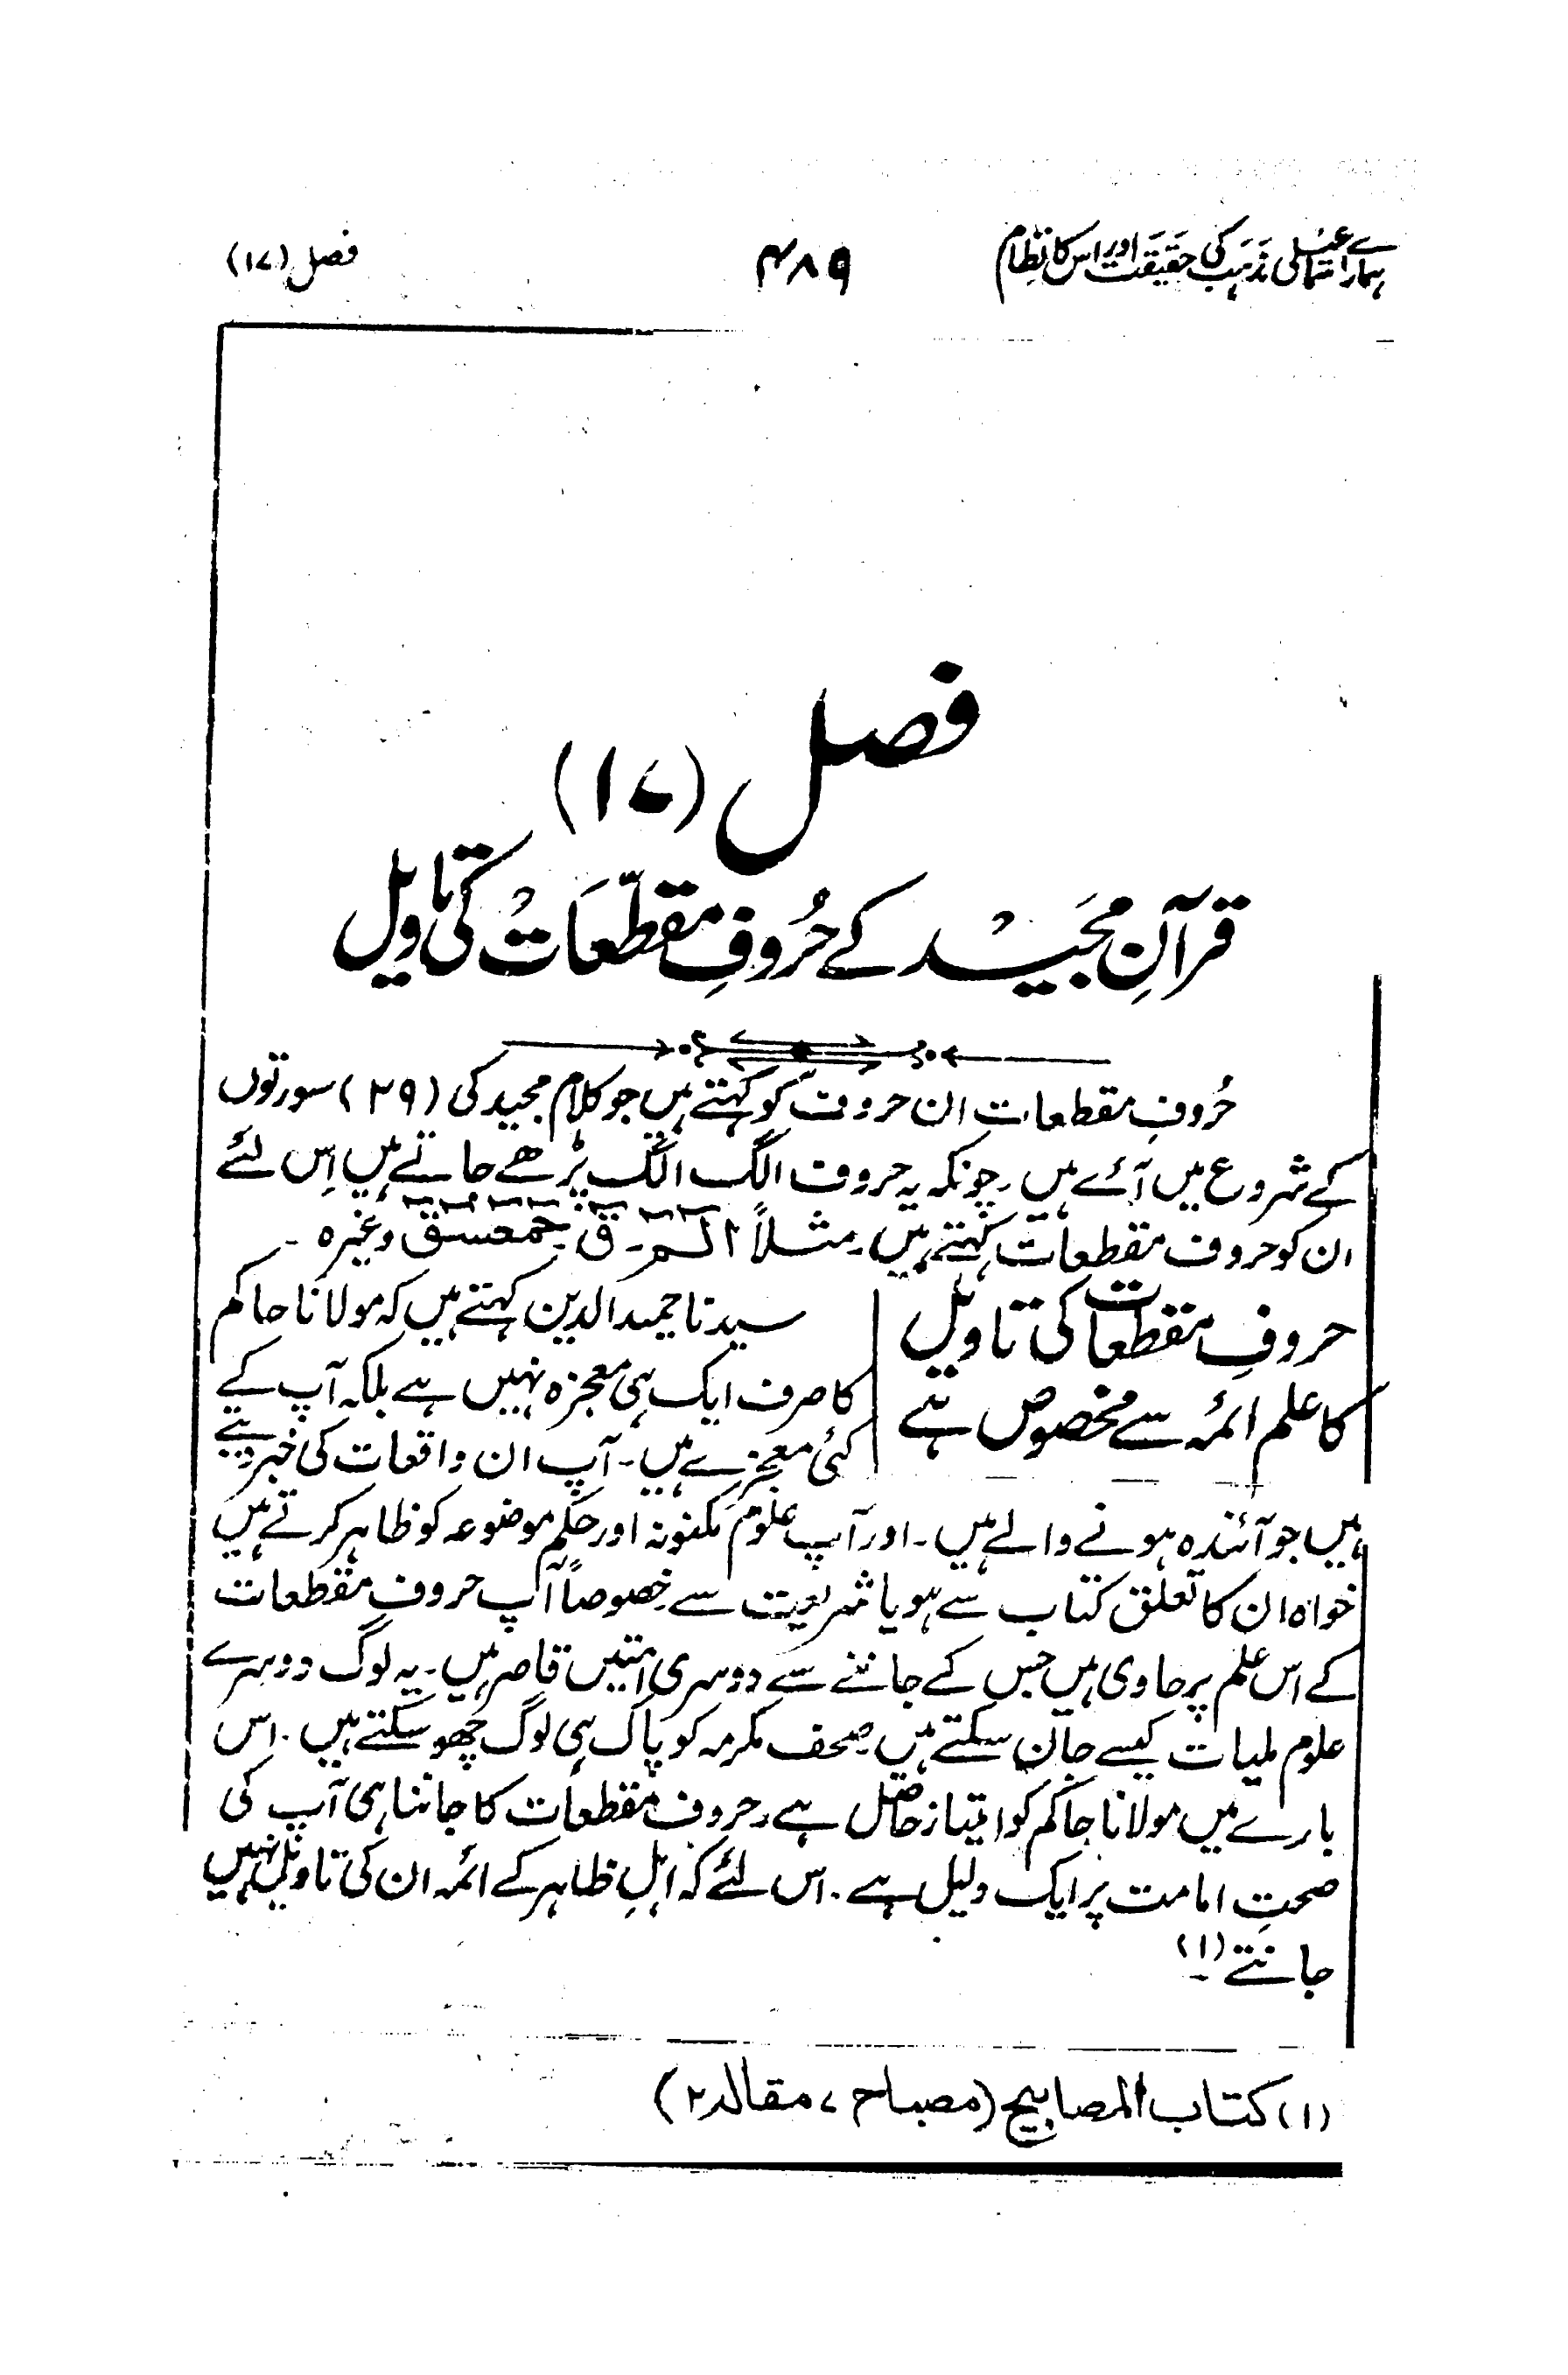 ہمارے اسماعیلی مذہب کی حقیقت اور اس کا نظام ۴۸۹ فصل (۱۷)
فصل (۱۷)
قرآنِ مجید کے حُروفِ مقطّعات کی تاویل
حُروفِ مقطعات ان حروف کو کہتے ہیں جو کلام مجید کی (۲۹) سورتوں
کے شروع میں آئے ہیں۔ چونکہ یہ حروف الگ الگ پڑھے جاتے ہیں اِس لئے
ان کو حروف مقطعات کہتے ہیں۔ مثلاً الٓمّٓ۔ قٓ۔ حٰمٓعٓسٓقٓ وغیرہ۔
حروفِ مقطعات کی تاویل
کا علم ائمہ سے مخصوص ہے
سیدنا حمید الدین کہتے ہیں کہ مولانا حاکم
کا صرف ایک ہی معجزہ نہیں ہے بلکہ آپ کے
کئی معجزے ہیں۔ آپ ان واقعات کی خبر دیتے
ہیں جو آئندہ ہونے والے ہیں۔ اور آپ علومِ مکنونہ اور حِکَم موضوعہ کو ظاہر کرتے ہیں
خواہ ان کا تعلق کتاب سے ہو یا شریعت سے خصوصاً آپ حروفِ مقطعات
کے اس علم پر حاوی ہیں جس کے جاننے سے دوسری امتیں قاصر ہیں۔ یہ لوگ دوسرے
علوم ملیات کیسے جان سکتے ہیں صحف مکرمہ کو پاک ہی لوگ چھو سکتے ہیں۔ اس
بارے میں مولانا حاکم کو امتیاز حاصل ہے۔ حروف مقطعات کا جاننا ہی آپ کی
صحتِ امامت پر ایک دلیل ہے۔ اس لئے کہ اہلِ ظاہر کے ائمہ ان کی تاویل نہیں
جانتے (۱)۔
(۱) کتاب المصابیح (مصباح ۷، مقالہ ۲)